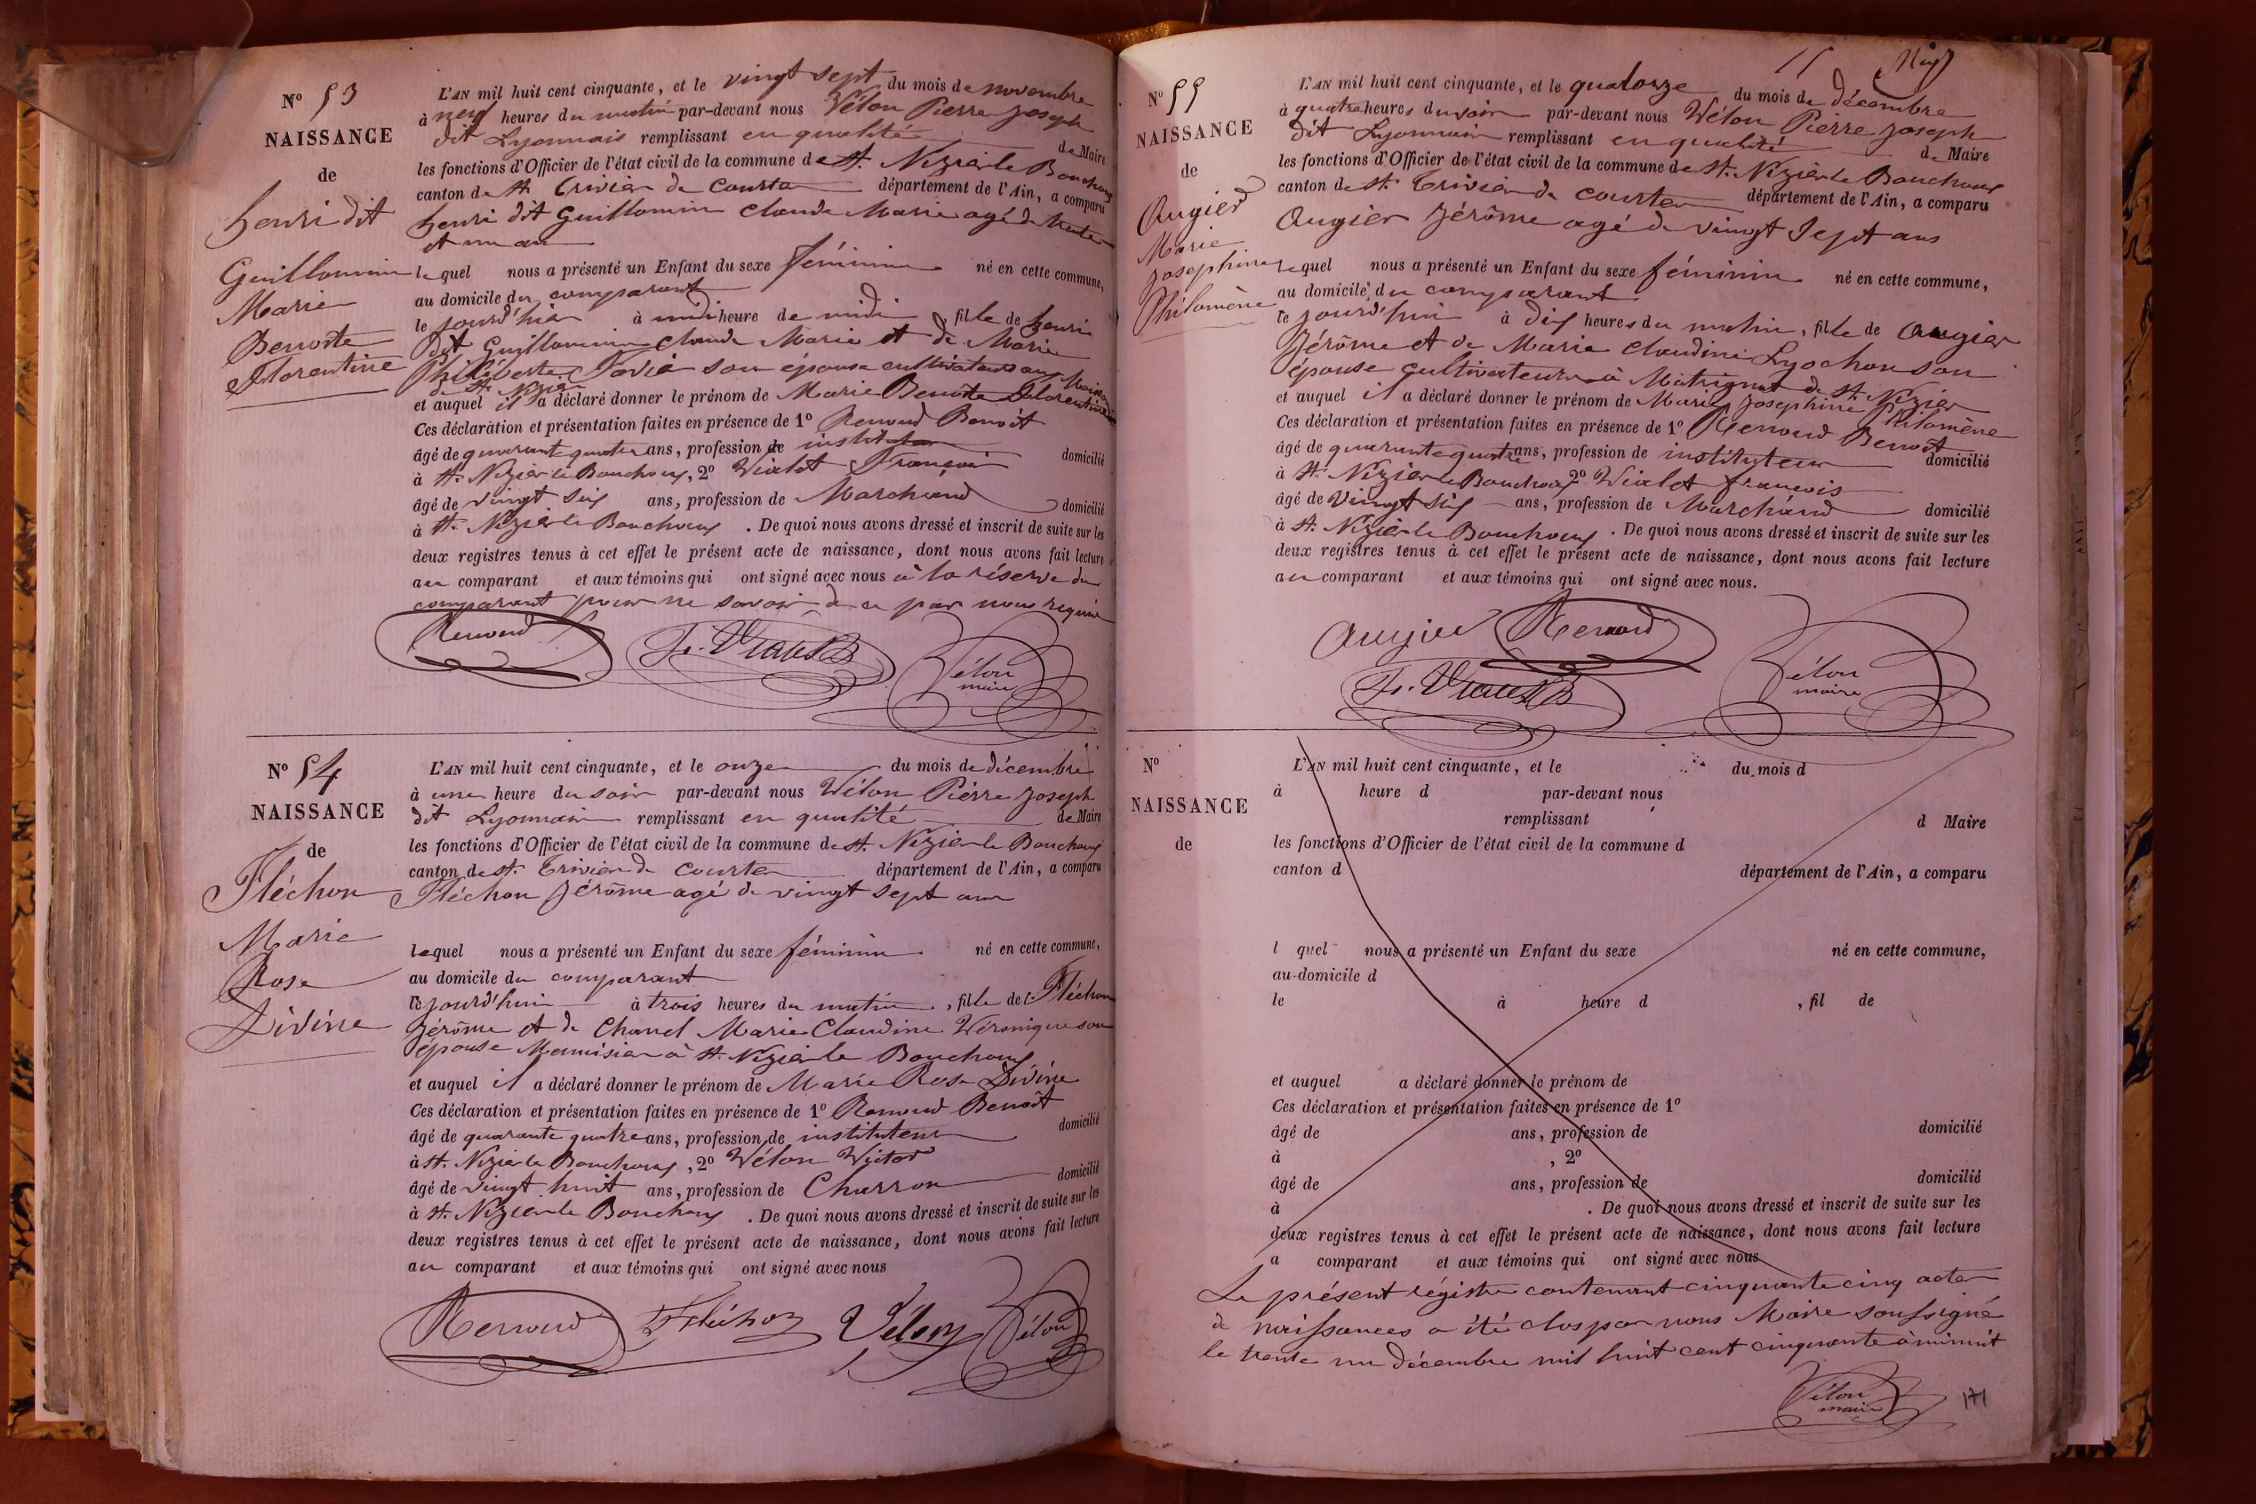 N° 53
NAISSANCE
de
henri dit
Guillomin
Marie
Benoite
Florentine
L'AN mil huit cent cinquante, et le vingt sept du mois de novembre
à neuf heures du matin par-devant nous Vélon Pierre Joseph
dit Lyonnais remplissant en qualité de Maire
les fonctions d'Officier de l'état civil de la commune de St. Nizier le Bouchoux
canton de St. Trivier de Courtes département de l'Ain, a comparu
henri dit Guillomin Claude Marie agé de trente
et un an
lequel nous a présenté un Enfant du sexe féminin né en cette commune,
au domicile du comparant
le jourd'hier à midi heure de midi, fille de henri
dit Guillomin Claude Marie et de Marie
Philiberte son épouse cultivateurs au
de St. Nizier
et auquel il a déclaré donner le prénom de Marie Benoite Florentine
Ces déclaration et présentation faites en présence de 1° Renoud Benoît
âgé de quarante quatre ans, profession de instituteur domicilié
à St. Nizier le Bouchoux, 2° Vialet François
âgé de vingt six ans, profession de Marchand domicilié
à St. Nizier le Bouchoux. De quoi nous avons dressé et inscrit de suite sur les
deux registres tenus à cet effet le présent acte de naissance, dont nous avons fait lecture
au comparant et aux témoins qui ont signé avec nous à la réserve du
comparant pour ne savoir de ce par nous requis
Renoud F. Vialet Vélon
maire
N° 54
NAISSANCE
de
Fléchon
Marie
Rose
Divine
L'AN mil huit cent cinquante, et le onze du mois de décembre
à une heure du soir par-devant nous Vélon Pierre Joseph
dit Lyonnais remplissant en qualité de Maire
les fonctions d'Officier de l'état civil de la commune de St. Nizier le Bouchoux
canton de St. Trivier de Courtes département de l'Ain, a comparu
Fléchon Jérôme agé de vingt sept ans
lequel nous a présenté un Enfant du sexe féminin né en cette commune,
au domicile du comparant
le jourd'hui à trois heures du matin, fille de Fléchon
Jérôme et de Chanel Marie Claudine Véronique son
épouse Menuisier à St. Nizier le Bouchoux
et auquel il a déclaré donner le prénom de Marie Rose Divine
Ces déclaration et présentation faites en présence de 1° Renoud Benoît
âgé de quarante quatre ans, profession de instituteur domicilié
à St. Nizier le Bouchoux, 2° Vélon Victor
âgé de vingt huit ans, profession de Charron domicilié
à St. Nizier le Bouchoux. De quoi nous avons dressé et inscrit de suite sur les
deux registres tenus à cet effet le présent acte de naissance, dont nous avons fait lecture
au comparant et aux témoins qui ont signé avec nous
Renoud Fléchon Vélon Vélon
N° 55
NAISSANCE
de
Augier
Marie
Josephine
Philomène
L'AN mil huit cent cinquante, et le quatorze du mois de décembre
à quatre heures du soir par-devant nous Vélon Pierre Joseph
dit Lyonnais remplissant en qualité de Maire
les fonctions d'Officier de l'état civil de la commune de St. Nizier le Bouchoux
canton de St. Trivier de Courtes département de l'Ain, a comparu
Augier Jérôme agé de vingt sept ans
lequel nous a présenté un Enfant du sexe féminin né en cette commune,
au domicile du comparant
le jourd'hui à dix heures du matin, fille de Augier
Jérôme et de Marie Claudine Lyochon son
épouse cultivateurs à Matrignat de St. Nizier
et auquel il a déclaré donner le prénom de Marie Josephine Philomène
Ces déclaration et présentation faites en présence de 1° Renoud Benoît
âgé de quarante quatre ans, profession de instituteur domicilié
à St. Nizier le Bouchoux 2° Vialet François
âgé de vingt six ans, profession de Marchand domicilié
à St. Nizier le Bouchoux. De quoi nous avons dressé et inscrit de suite sur les
deux registres tenus à cet effet le présent acte de naissance, dont nous avons fait lecture
au comparant et aux témoins qui ont signé avec nous.
Augier Renoud
F. Vialet Vélon
maire
N°
NAISSANCE
de
L'AN mil huit cent cinquante, et le du mois d
à heure d par-devant nous
remplissant d Maire
les fonctions d'Officier de l'état civil de la commune d
canton d département de l'Ain, a comparu
l quel nous a présenté un Enfant du sexe né en cette commune,
au domicile d
le à heure d , fil de
et auquel a déclaré donner le prénom de
Ces déclaration et présentation faites en présence de 1°
âgé de ans, profession de domicilié
à , 2°
âgé de ans, profession de domicilié
à . De quoi nous avons dressé et inscrit de suite sur les
deux registres tenus à cet effet le présent acte de naissance, dont nous avons fait lecture
a comparant et aux témoins qui ont signé avec nous
Le présent régistre contenant cinquante cinq actes
de naissances a été clos par nous Maire soussigné
le trente un décembre mil huit cent cinquante à minuit
Vélon
maire
171